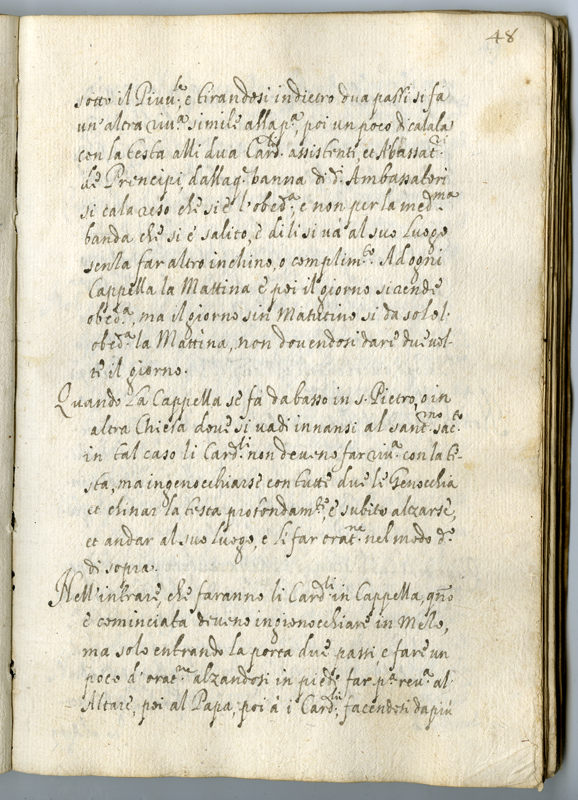 48
sotto il Piuu.le, e tirandosi indietro dua passi si fà
un'altra riu.a simile alla p.a, poi un poco di calata
con la testa alli dua Card.li assistenti, et Abassat.ri
de Prencipi dalla q. banna di d.i Ambassatori
si cala reso che si è l'obed.a, e non per la med.ma
banda che si è salito, e di li si và al suo Luogo
senza far altro inchino, o complim.to. Ad ogni
Cappella la Mattina e poi il giorno si rende
obed.a, ma il giorno s'in Matutino si da sol el.
obed.a la Mattina, non douendosi dare due vol-
te il giorno.
Quando La Cappella se fà da basso in s. Pietro, o in
altra Chiesa doue si uadi innansi al sant.mo sac.to
in tal caso li Card.li non deueno far riu.a con la te-
sta, ma ingenocchiarse con tutte due le Genocchia
et chinar la testa profondam.te, e subito alzarse,
et andar al suo luogo, e li far orat.ne nel modo d.o
di sopra.
Nell'intrare, che faranno li Card.li in Cappella, qño
è cominciata deueno ingionocchiare in Melo,
ma solo entrando la porta due passi e fare un
poco d'orat.ne alzandosi in pied.i far p.a reu.a al
Altare, poi al Papa, poi à i Card.li, facendosi da più